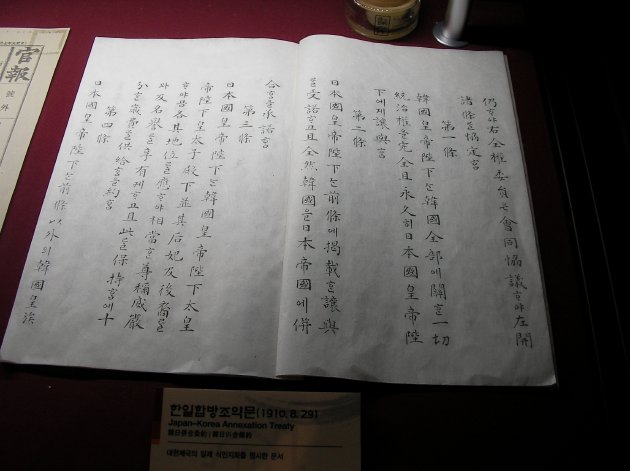 仍ᄒᆞ야右全權委員은會同協議ᄒᆞ야左開
諸條를協定홈
第一條
韓國皇帝陛下는韓國全部에關ᄒᆞᆫ一切
統治權을完全且永久히日本國皇帝陛
下에게讓與홈
第二條
日本國皇帝陛下는前條에揭載ᄒᆞᆫ讓與
를受諾ᄒᆞ고且全然韓國을日本帝國에倂
合홈을承諾홈
第三條
日本國皇帝陛下는韓國皇帝陛下太皇
帝陛下皇太子殿下並其后妃及後裔로
ᄒᆞ야곰各其地位를應ᄒᆞ야相當ᄒᆞᆫ尊稱威嚴
及名譽를享有케ᄒᆞ고且此를保持홈에十
分ᄒᆞᆫ歲費를供給홈을約홈
第四條
日本國皇帝陛下는前條以外의韓國皇族
官報
號外
한일합방조약문(1910. 8. 29)
Japan-Korea Annexation Treaty
대한제국의 일제 식민지화를 명시한 문서